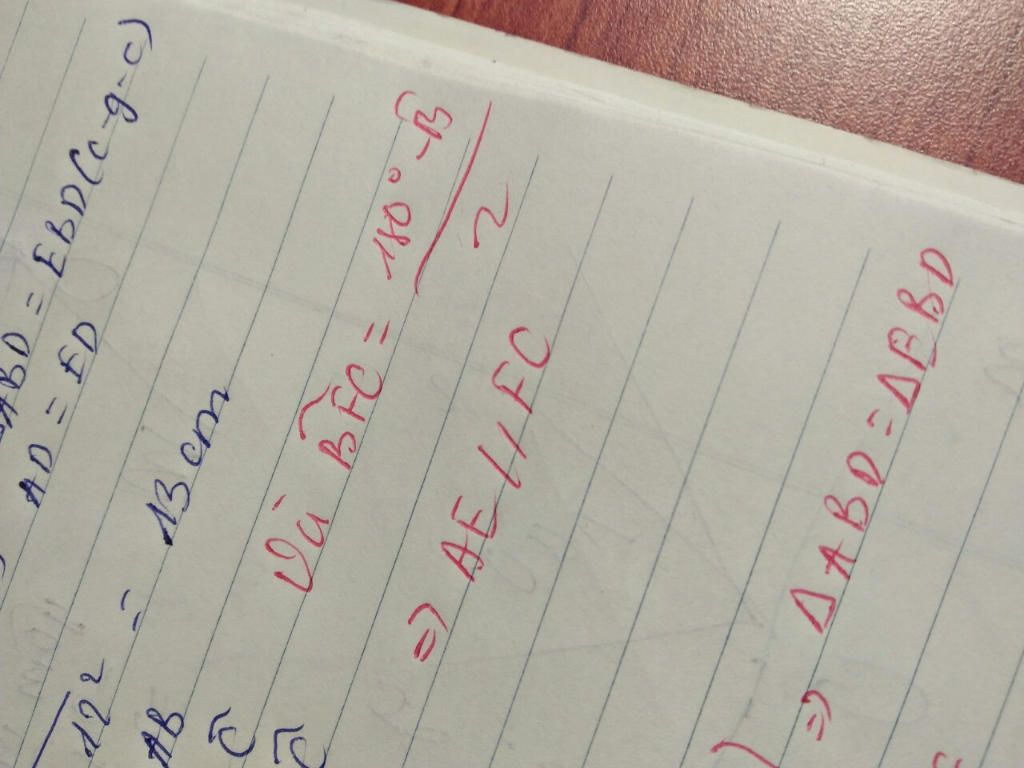 ABD = EBD (c-g-c)
AD = ED
12² = 13 cm
AB
Ĉ
Ĉ
Và BFC = 180° - B / 2
=> AE // FC
=> Δ ABD = Δ EBD